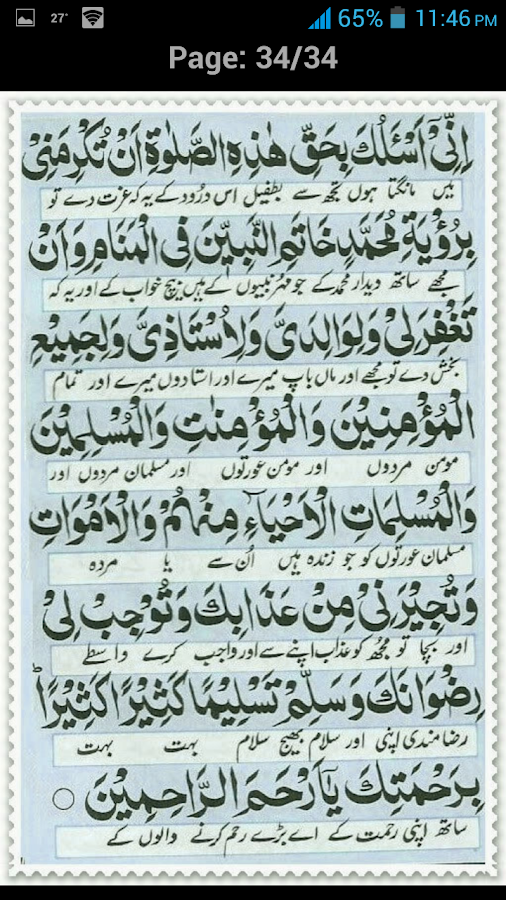 27°
65%
11:46 PM
Page: 34/34
اِنِّیْۤ اَسْئَلُكَ بِحَقِّ هٰذِهِ الصَّلٰوةِ اَنْ تُكْرِمَنِیْ
میں مانگتا ہوں تجھ سے بطفیل اس درُود کے یہ کہ عزت دے تو
بِرُؤْيَةِ مُحَمَّدٍ خَاتَمِ النَّبِيّٖنَ فِی الْمَنَامِ وَاَنْ
مجھے ساتھ دیدار محمد کے جو مہر نبیوں کے ہیں بیچ خواب کے اور یہ کہ
تَغْفِرَ لِیْ وَلِوَالِدَیَّ وَلِاُسْتَاذِیَّ وَلِجَمِيْعِ
بخش دے تو مجھے اور ماں باپ میرے اور استادوں میرے اور تمام
الْمُؤْمِنِيْنَ وَالْمُؤْمِنٰتِ وَالْمُسْلِمِيْنَ
مومن مردوں اور مومن عورتوں اور مسلمان مردوں اور
وَالْمُسْلِمَاتِ الْاَحْيَآءِ مِنْهُمْ وَالْاَمْوَاتِ
مسلمان عورتوں کو جو زندہ ہیں اُن سے یا مردہ
وَتُجِيْرَنِیْ مِنْ عَذَابِكَ وَتُوْجِبْ لِیْ
اور بچا تو مجھ کو عذاب اپنے سے اور واجب کرے واسطے
رِضْوَانَكَ وَسَلِّمْ تَسْلِيْمًا كَثِيْرًا كَثِيْرًاؕ
رضامندی اپنی اور سلام بھیج سلام بہت بہت
بِرَحْمَتِكَ يَاۤ اَرْحَمَ الرَّاحِمِيْنَ ○
ساتھ اپنی رحمت کے اے بڑے رحم کرنے والوں کے